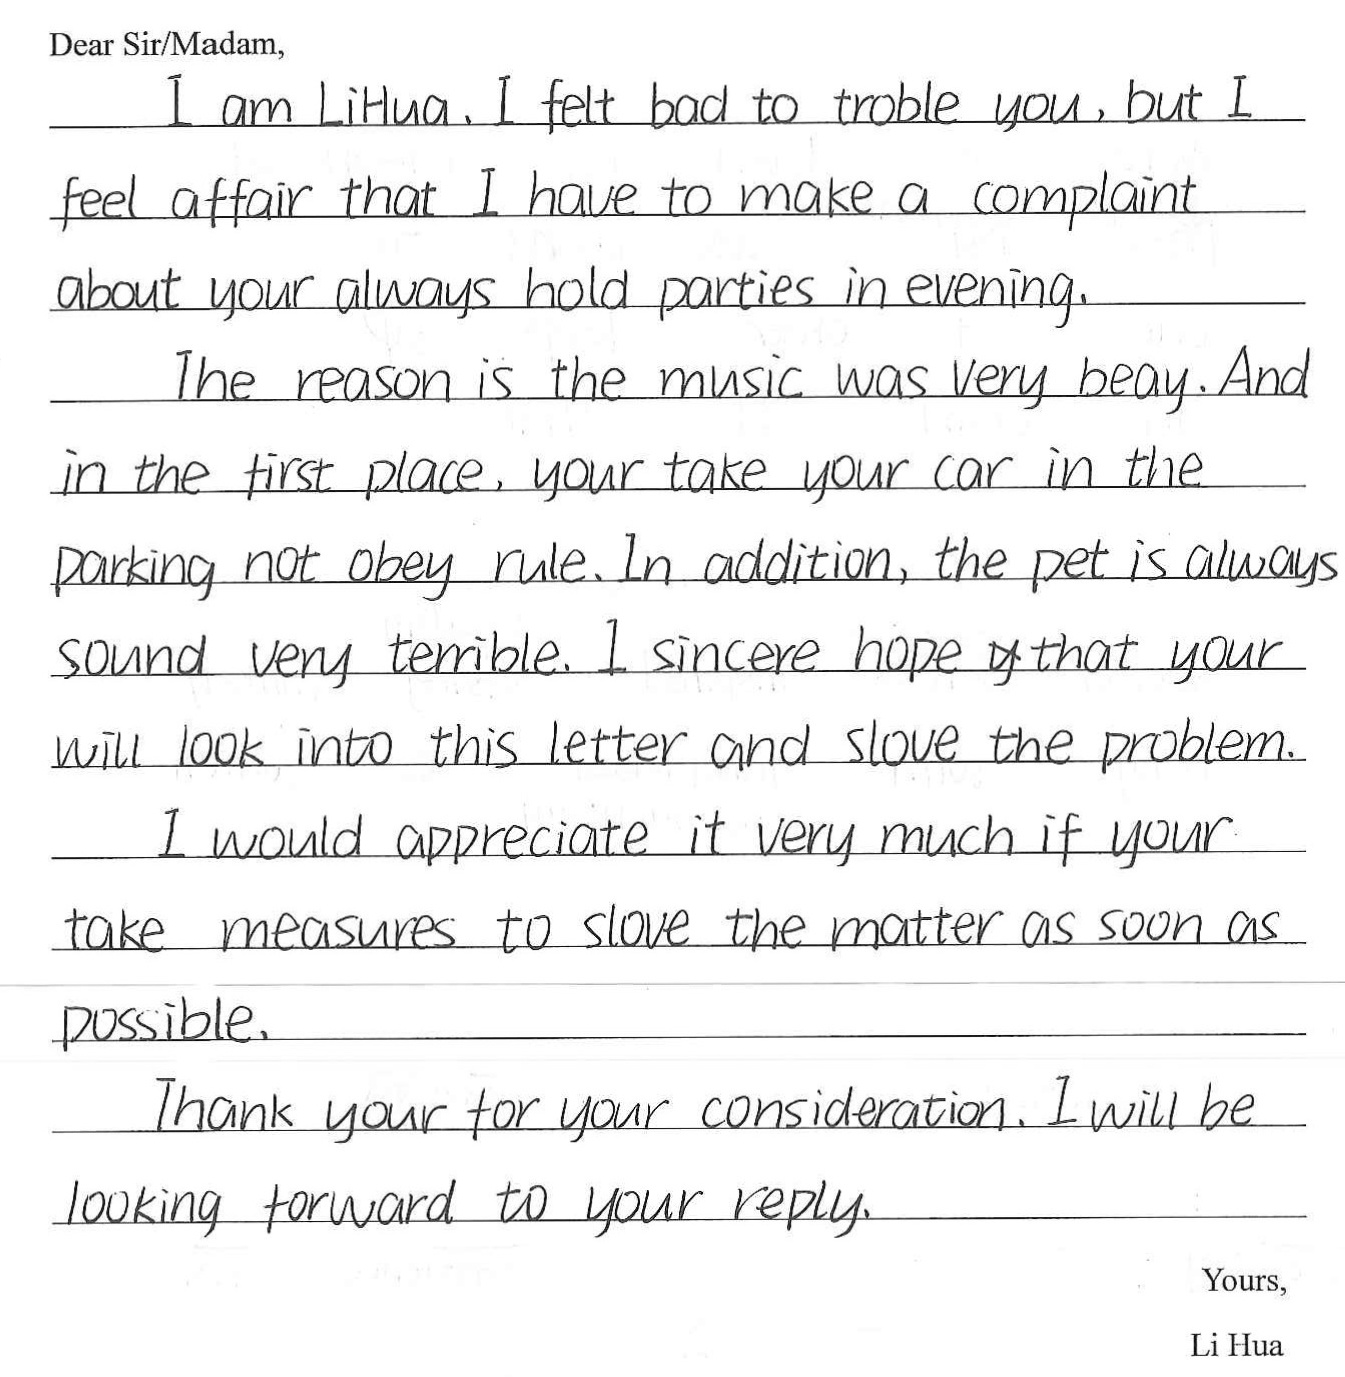 Dear Sir/Madam,
I am LiHua. I felt bad to troble you, but I
feel affair that I have to make a complaint
about your always hold parties in evening.
The reason is the music was very beay. And
in the first place, your take your car in the
parking not obey rule. In addition, the pet is always
sound very terrible. I sincere hope that your
will look into this letter and slove the problem.
I would appreciate it very much if your
take measures to slove the matter as soon as
possible.
Thank your for your consideration. I will be
looking forward to your reply.
Yours,
Li Hua